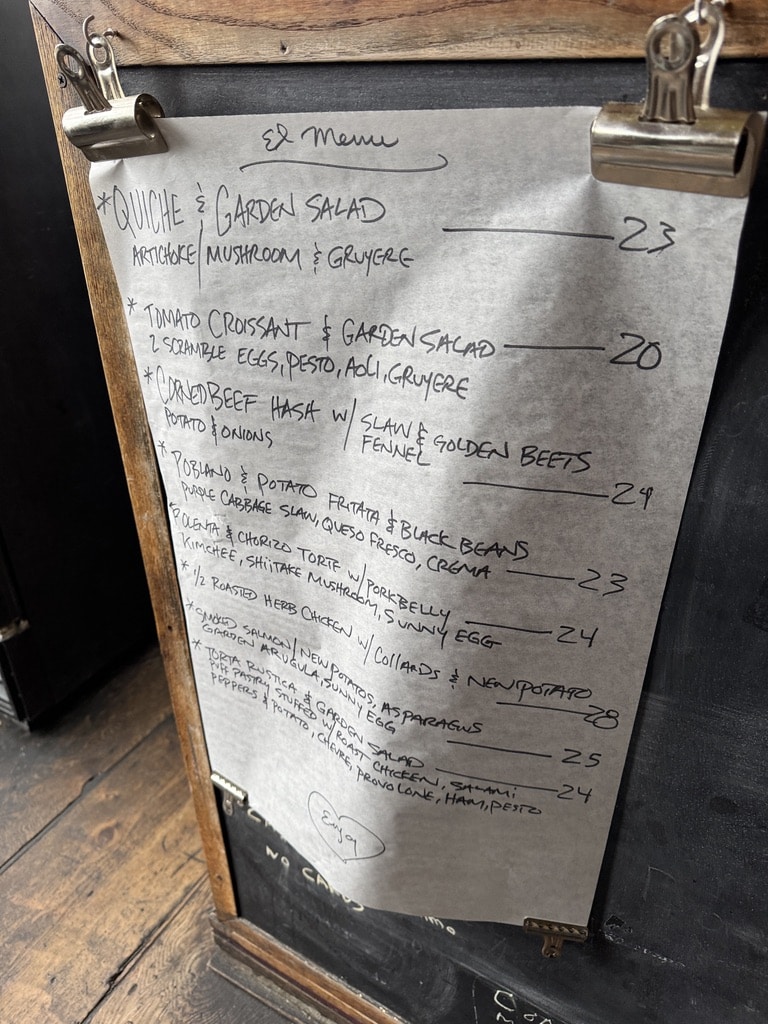 El Menu
*QUICHE & GARDEN SALAD 23
ARTICHOKE/MUSHROOM & GRUYERE
* TOMATO CROISSANT & GARDEN SALAD 20
2 SCRAMBLE EGGS, PESTO, AOLI, GRUYERE
* CORNED BEEF HASH W/ SLAW & GOLDEN BEETS
POTATO & ONIONS FENNEL 24
* POBLANO & POTATO FRITATA & BLACK BEANS
PURPLE CABBAGE SLAW, QUESO FRESCO, CREMA 23
* POLENTA & CHORIZO TORTE W/ PORKBELLY
KIMCHEE, SHIITAKE MUSHROOM, SUNNY EGG 24
* 1/2 ROASTED HERB CHICKEN W/ COLLARDS & NEW POTATO 28
*SMOKED SALMON/NEW POTATOS, ASPARAGUS
GARDEN ARUGULA, SUNNY EGG 25
* TORTA RUSTICA & GARDEN SALAD 24
PUFF PASTRY STUFFED W/ ROAST CHICKEN, SALAMI
PEPPERS & POTATO, CHEVRE, PROVOLONE, HAM, PESTO
Enjoy
NO CARDS